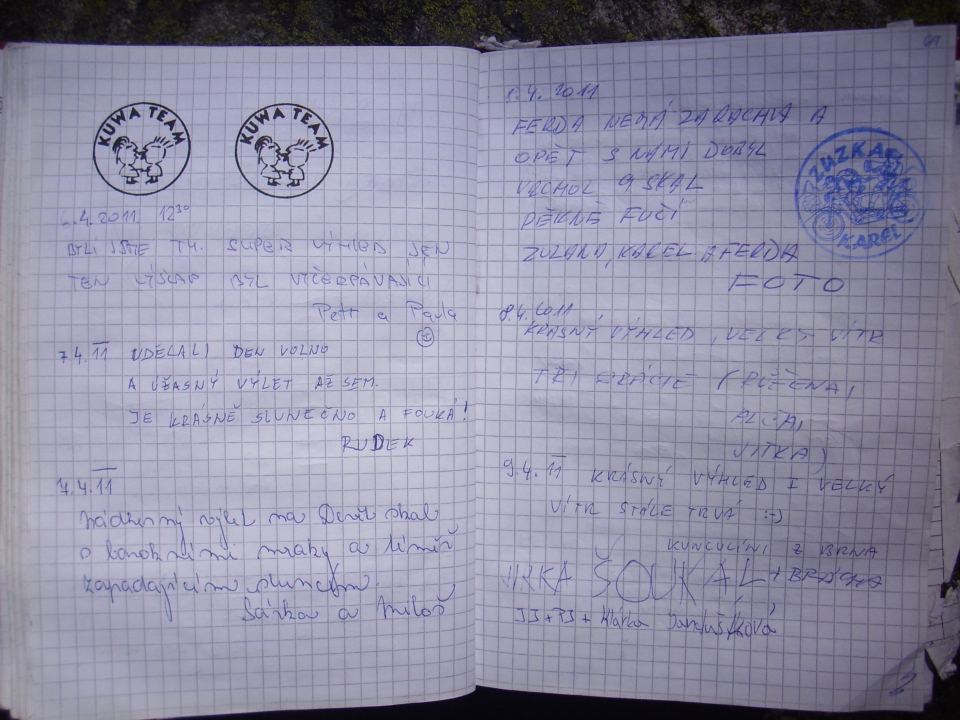 KUWA TEAM
KUWA TEAM
6.4.2011 12³⁰
BYLI JSME TU. SUPER VÝHLED JEN
TEN VÝŠLAP BYL VYČERPÁVAJÍCÍ
Petr a Pavla
7.4.11 UDĚLALI DEN VOLNO
A ÚŽASNÝ VÝLET AŽ SEM.
JE KRÁSNĚ SLUNEČNO A FOUKÁ!
RUDEK
7.4.11
Nádherný výlet na Devět skal
s barokními mraky a téměř
zapadajícím sluncem.
Šárka a Miloš
61
8.4.2011
FERDA NEMÁ ZARACHLA A
OPĚT S NÁMI DOBYL
VRCHOL 9 SKAL
PĚKNĚ FUČÍ
ZUZANA, KAREL A FERDA
FOTO
ZUZKA
KAREL
8.4.2011
KRÁSNÝ VÝHLED, VELKÝ VÍTR
TŘI GRÁCIE (RŮŽENA,
JITKA)
9.4.11 KRÁSNÝ VÝHLED I VELKÝ
VÍTR STÁLE TRVÁ :-)
Z BRNA
JIRKA ŠOUKAL + BRÁCHA
JJ + PJ + Klárka